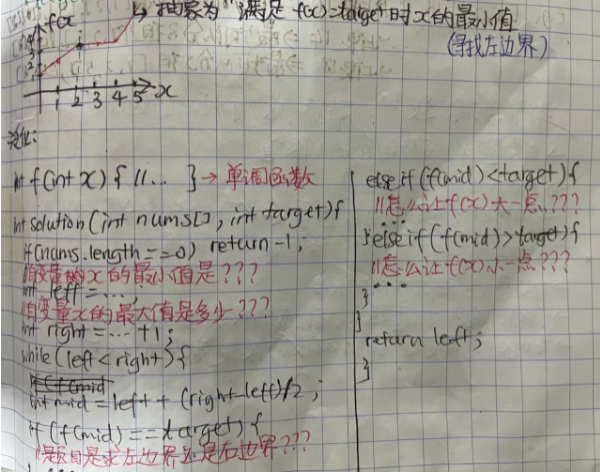 f(x)
→ 抽象为 "满足 f(x)=target 时 x 的最小值
(寻找左边界)
1 2 3 4 5 x
泛化:
int f(int x) { //... } → 单调函数
int solution(int nums[], int target){
if(nums.length==0) return -1;
自变量的x的最小值是???
int left = ...;
自变量x的最大值是多少???
int right = ... +1;
while(left<right){
if(f(mid
int mid = left + (right-left)/2;
if(f(mid) == target) {
题目是求左边界还是右边界???
...
else if (f(mid)<target) {
//怎么让f(x)大一点???
...
}else if(f(mid)>target){
//怎么让f(x)小一点???
...
}
}
return left;
}